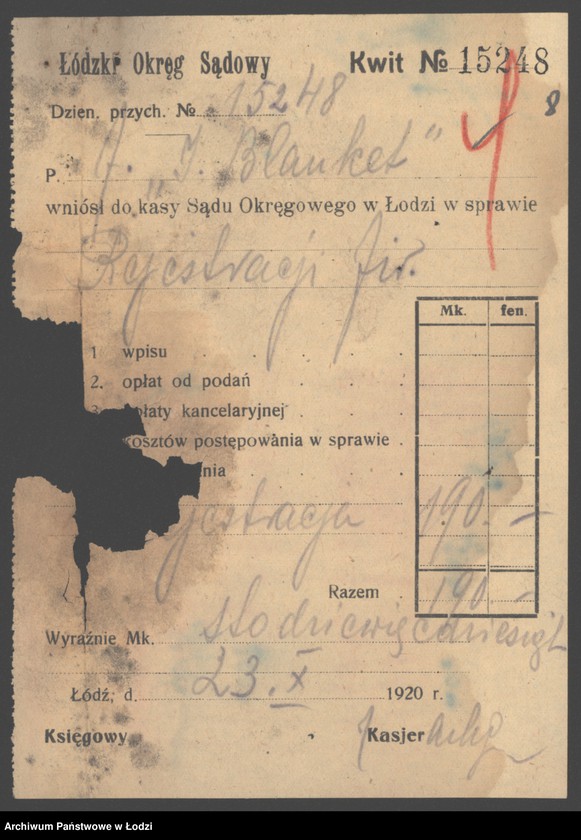 Łódzki Okręg Sądowy Kwit № 15248
8
Dzien. przych. № 15248
P. f. „J. Blanket"
wniósł do kasy Sądu Okręgowego w Łodzi w sprawie
Rejestracji fir.
Mk. fen.
1 wpisu
2. opłat od podań
3. płaty kancelaryjnej
kosztów postępowania w sprawie
nia
jestracja 190. —
Razem 190. —
Wyraźnie Mk. stodziewięćdziesiąt
Łódź, d. 23.X 1920 r.
Księgowy Kasjer
Archiwum Państwowe w Łodzi